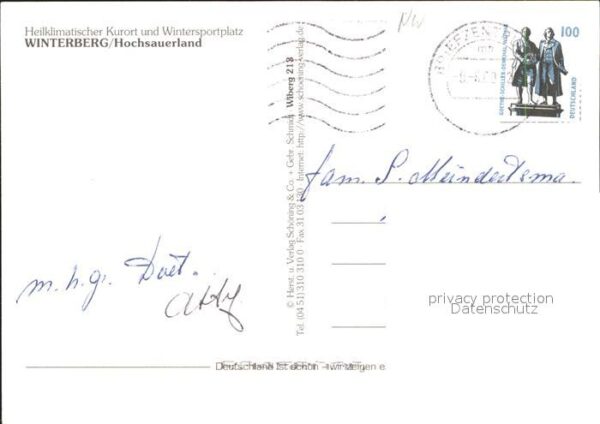 Heilklimatischer Kurort und Wintersportplatz
WINTERBERG/Hochsauerland
NW
100
GOETHE-SCHILLER-DENKMAL
DEUTSCHLAND
© Herst. u. Verlag Schöning & Co. + Gebr. Schmidt Wiberg 213
Tel. (04 51) 310 310 0 · Fax 31 03 · Internet: http://www.schoening-verlag.de
fam. S. Meindertsma.
m. h. gr. Doet.
privacy protection
Datenschutz
Deutschland ist schön – wir zeigen e